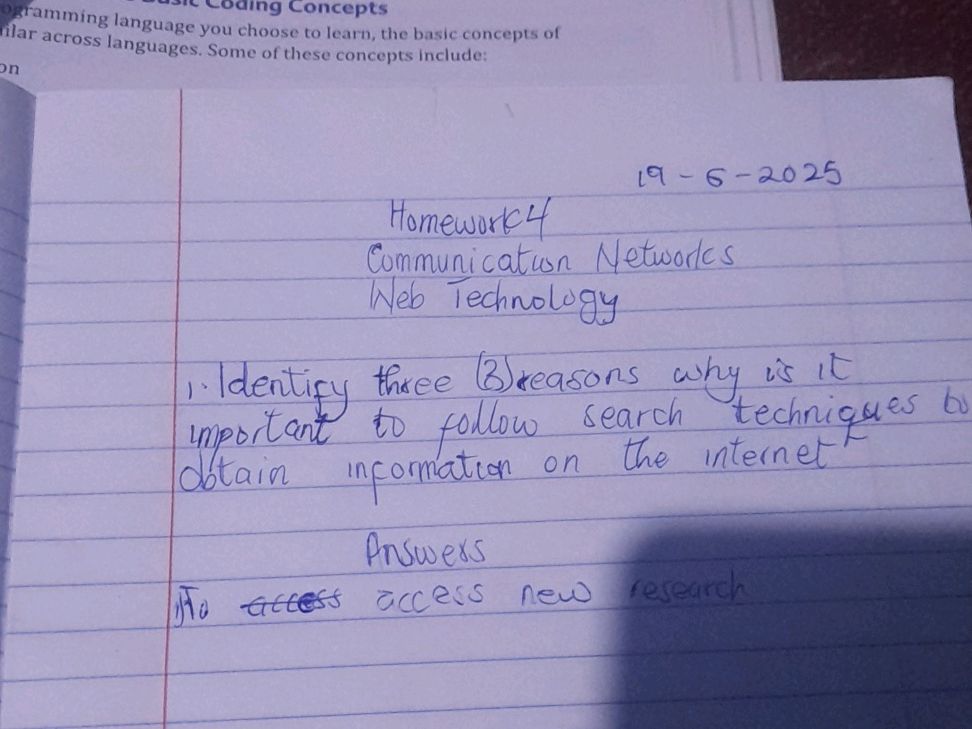 Basic Coding Concepts
ogramming language you choose to learn, the basic concepts of
ilar across languages. Some of these concepts include:
on
19-6-2025
Homework 4
Communication Networks
Web Technology
1. Identify three (3) reasons why is it
important to follow search techniques to
obtain information on the internet
Answers
i) To access access new research